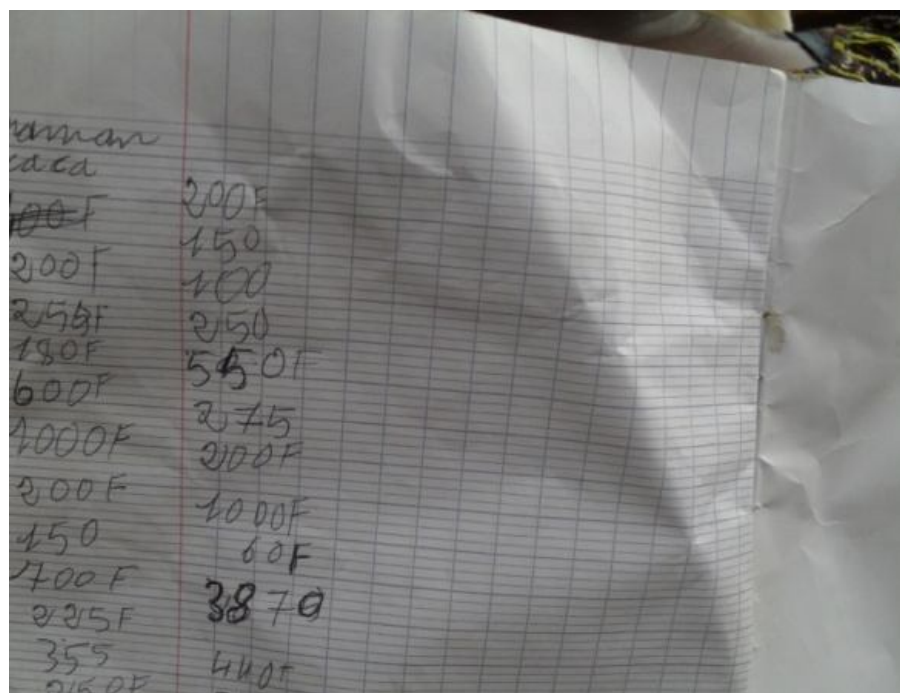 maman
caca
200F
200F
180F
600F
1000F
200F
150
700F
225F
355
250F
200F
150
100
250
550F
275
200F
1000F
60F
3870
440F